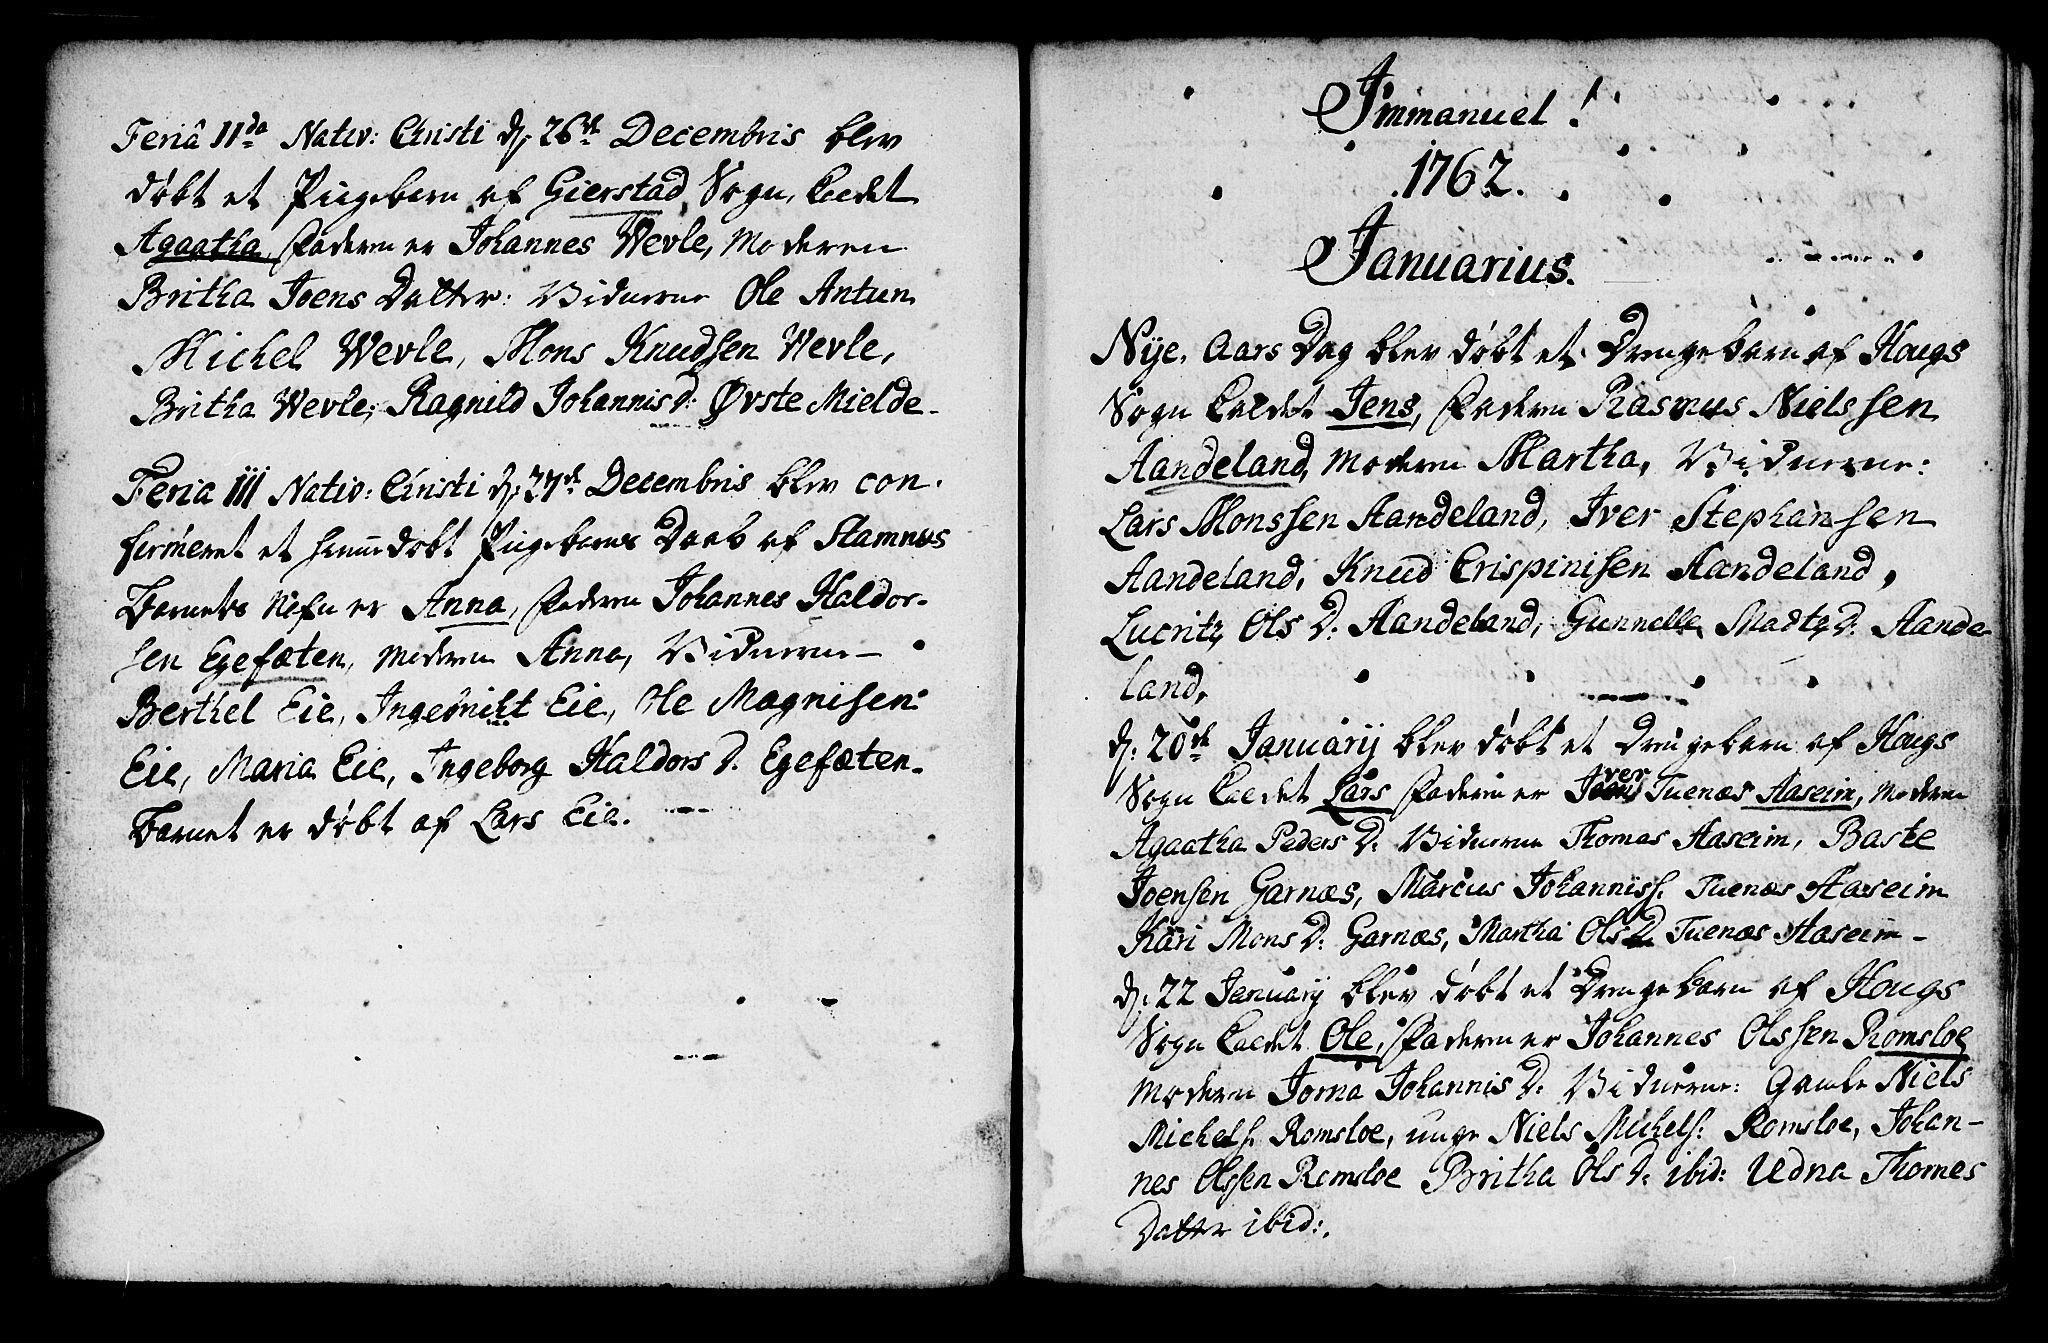 Feriâ IIda Nativ: Christi d. 26de Decembris blev
døbt et Pigebarn af Gierstad Sogn, kaldet
Agaatha, Faderen er Johannes Wevle, Moderen
Britha Joens Datter: Vidnerne Ole Antun
Michel Wevle, Mons Knudsen Wevle,
Britha Wevle, Ragnild Johannis D: Øvste Mielde.
Feria III Nativ: Christi d. 27de Decembris blev con-
firmeret et hiemmedøbt Pigebarns Daab af Hamnus
Barnets Nafn er Anna, Faderen Johannes Haldor-
sen Egefæten, Moderen Anna, Vidnerne
Berthel Eie, Ingebricht Eie, Ole Magnisen
Eie, Maria Eie, Ingeborg Haldors D. Egefæten.
Barnet er døbt af Lars Eie.
Immanuel!
1762.
Januarius.
Nye Aars Dag blev døbt et Drengebarn af Hougs
Sogn kaldet Jens, Faderen Rasmus Nielssen
Aandeland, Moderen Martha, Vidnerne:
Lars Monssen Aandeland, Iver Stephansen
Aandeland, Knud Crispinisen Aandeland,
Lucritz Ols D: Aandeland, Gunnelle Madtz D: Aande-
land.
d. 20de Januarij blev døbt et Drengebarn af Hougs
Sogn kaldet Lars Faderen er Iver Tuenæs Aaseim, Moderen
Agaatha Peders D. Vidnerne Thomas Aaseim, Baste
Joensen Garnæs, Marcus Johanniss. Tuenæs Aaseim
Kari Mons D: Garnæs, Martha Ols D. Tuenæs Aaseim
d. 22 Januarij blev døbt et Drengebarn af Hougs
Sogn kaldet Ole, Faderen er Johannes Olssen Romsloe
Moderen Jorna Johannis D. Vidnerne: Gamle Niels
Michels. Romsloe, unge Niels Michels. Romsloe, Johan-
nes Olssen Romsloe Britha Ols D. ibid: Udna Thomes
Datter ibid:.